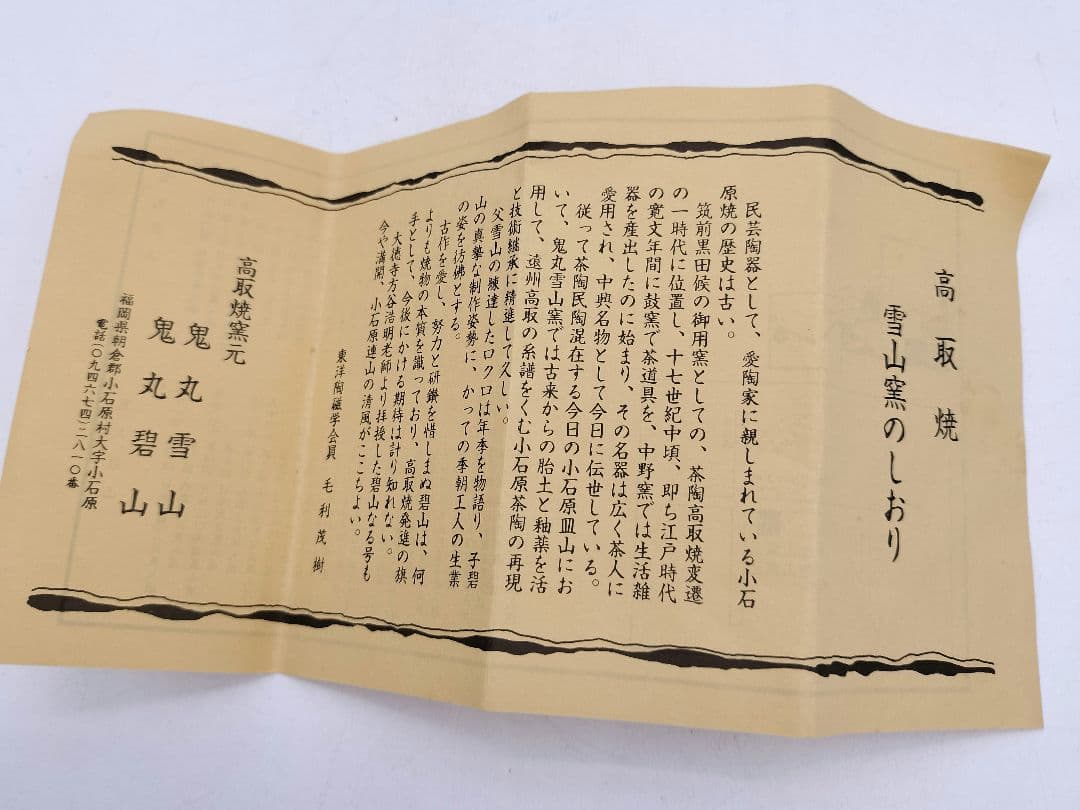 高取焼
雪山窯のしおり
民芸陶器として、愛陶家に親しまれている小石
原焼の歴史は古い。
筑前黒田候の御用窯としての、茶陶高取焼変遷
の一時代に位置し、十七世紀中頃、即ち江戸時代
の寛文年間に鼓窯で茶道具を、中野窯では生活雑
器を産出したのに始まり、その名器は広く茶人に
愛用され、中興名物として今日に伝世している。
従って茶陶民陶混在する今日の小石原皿山にお
いて、鬼丸雪山窯では古来からの胎土と釉薬を活
用して、遠州高取の系譜をくむ小石原茶陶の再現
と技術継承に精進して久しい。
父雪山の練達したロクロは年季を物語り、子碧
山の真摯な制作姿勢に、かっての李朝工人の生業
の姿を彷彿とする。
古作を愛し、努力と研鑚を惜しまぬ碧山は、何
よりも焼物の本質を識っており、高取焼発進の旗
手として、今後にかける期待は計り知れない。
大徳寺方谷浩明老師より拝授した碧山なる号も
今や満開、小石原連山の清風がここちよい。
東洋陶磁学会員　毛利茂樹
高取焼窯元
鬼丸雪山
鬼丸碧山
福岡県朝倉郡小石原村大字小石原
電話(〇九四六七四)二八一〇番